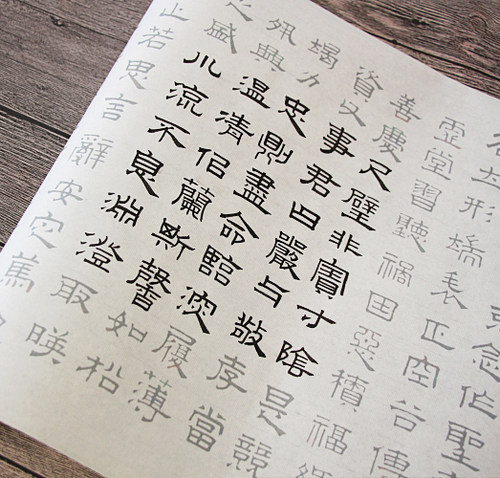 念作聖
形端表正空谷傳
虛堂習聽禍因惡積福
善慶尺璧非寶寸陰是競
資父事君曰嚴与敬孝當
竭力忠則盡命臨深履薄
夙興温清似蘭斯馨如松
之盛川流不息淵澄取暎
止若思言辭安定篤